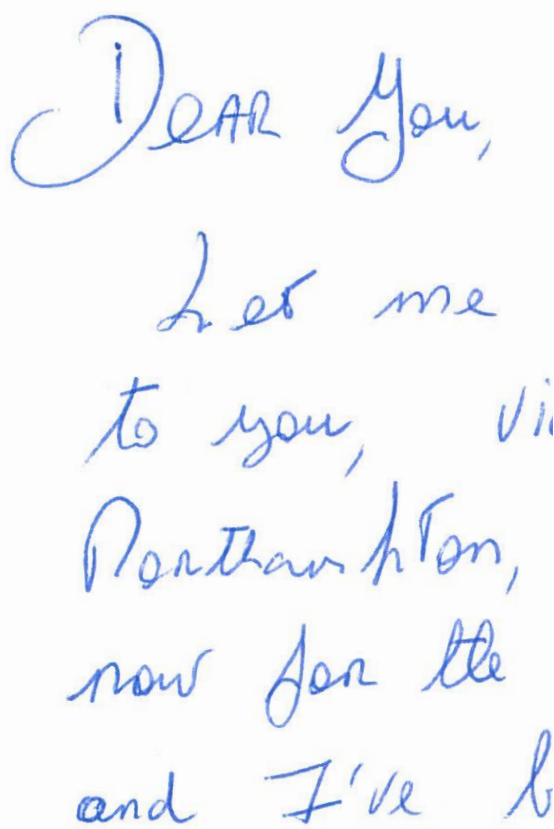 Dear You,
Let me
to you, vi
Northampton,
now for the
and I've b